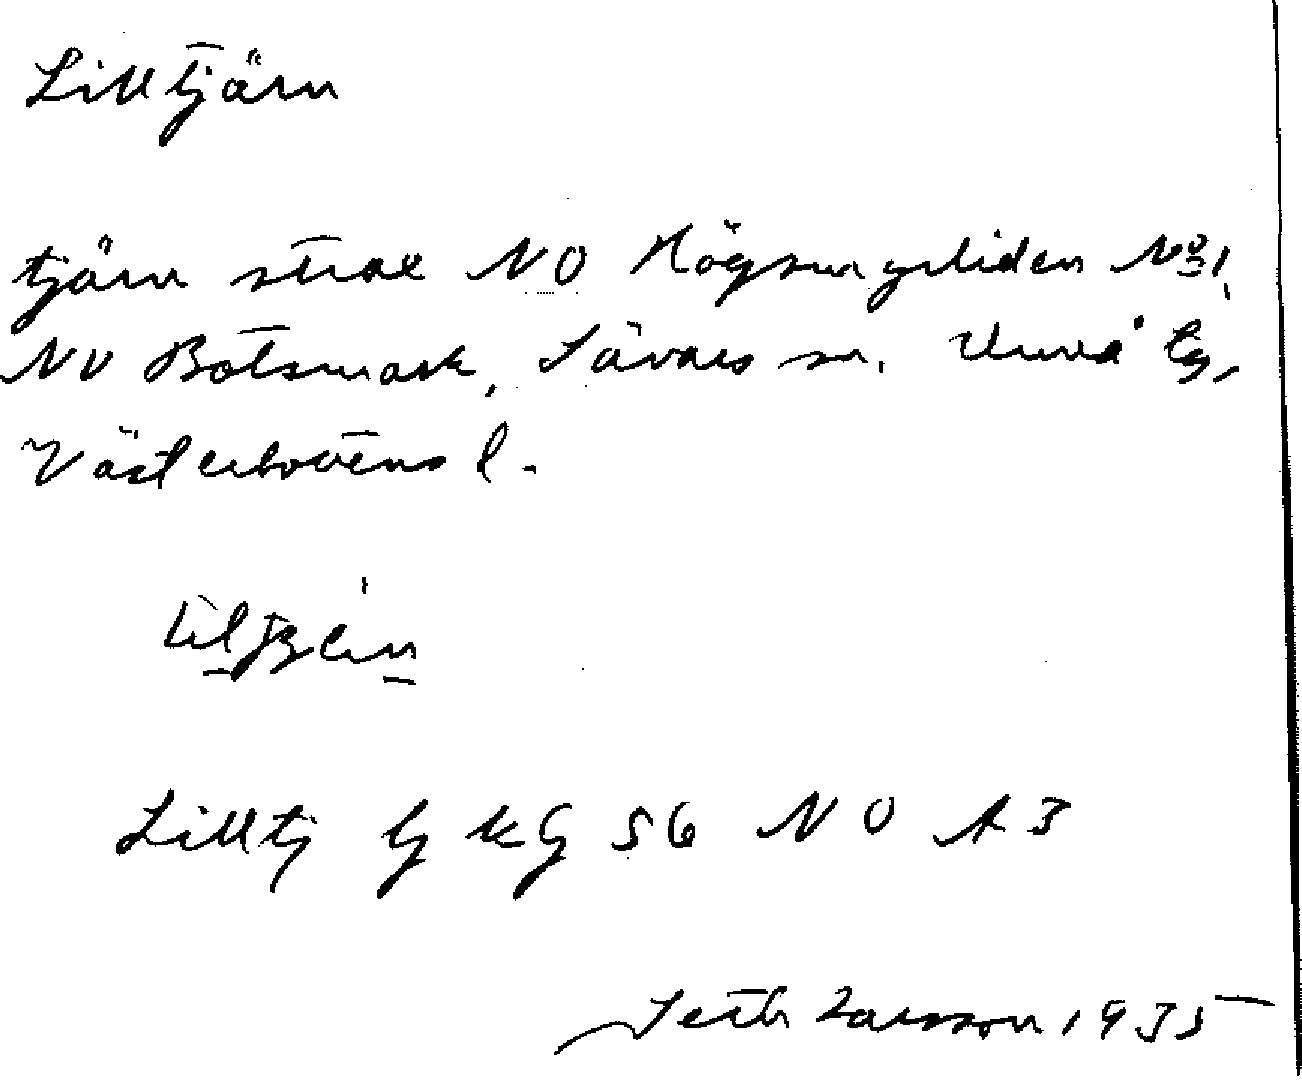 Lilltjärn
tjärn strax NO Högsmyrliden No 1,
NV Botsmark, Sävars sn. Umeå tg,
Västerbottens l.
Lilltj Gg KG 56 NO A 3
Seth Larsson 1935